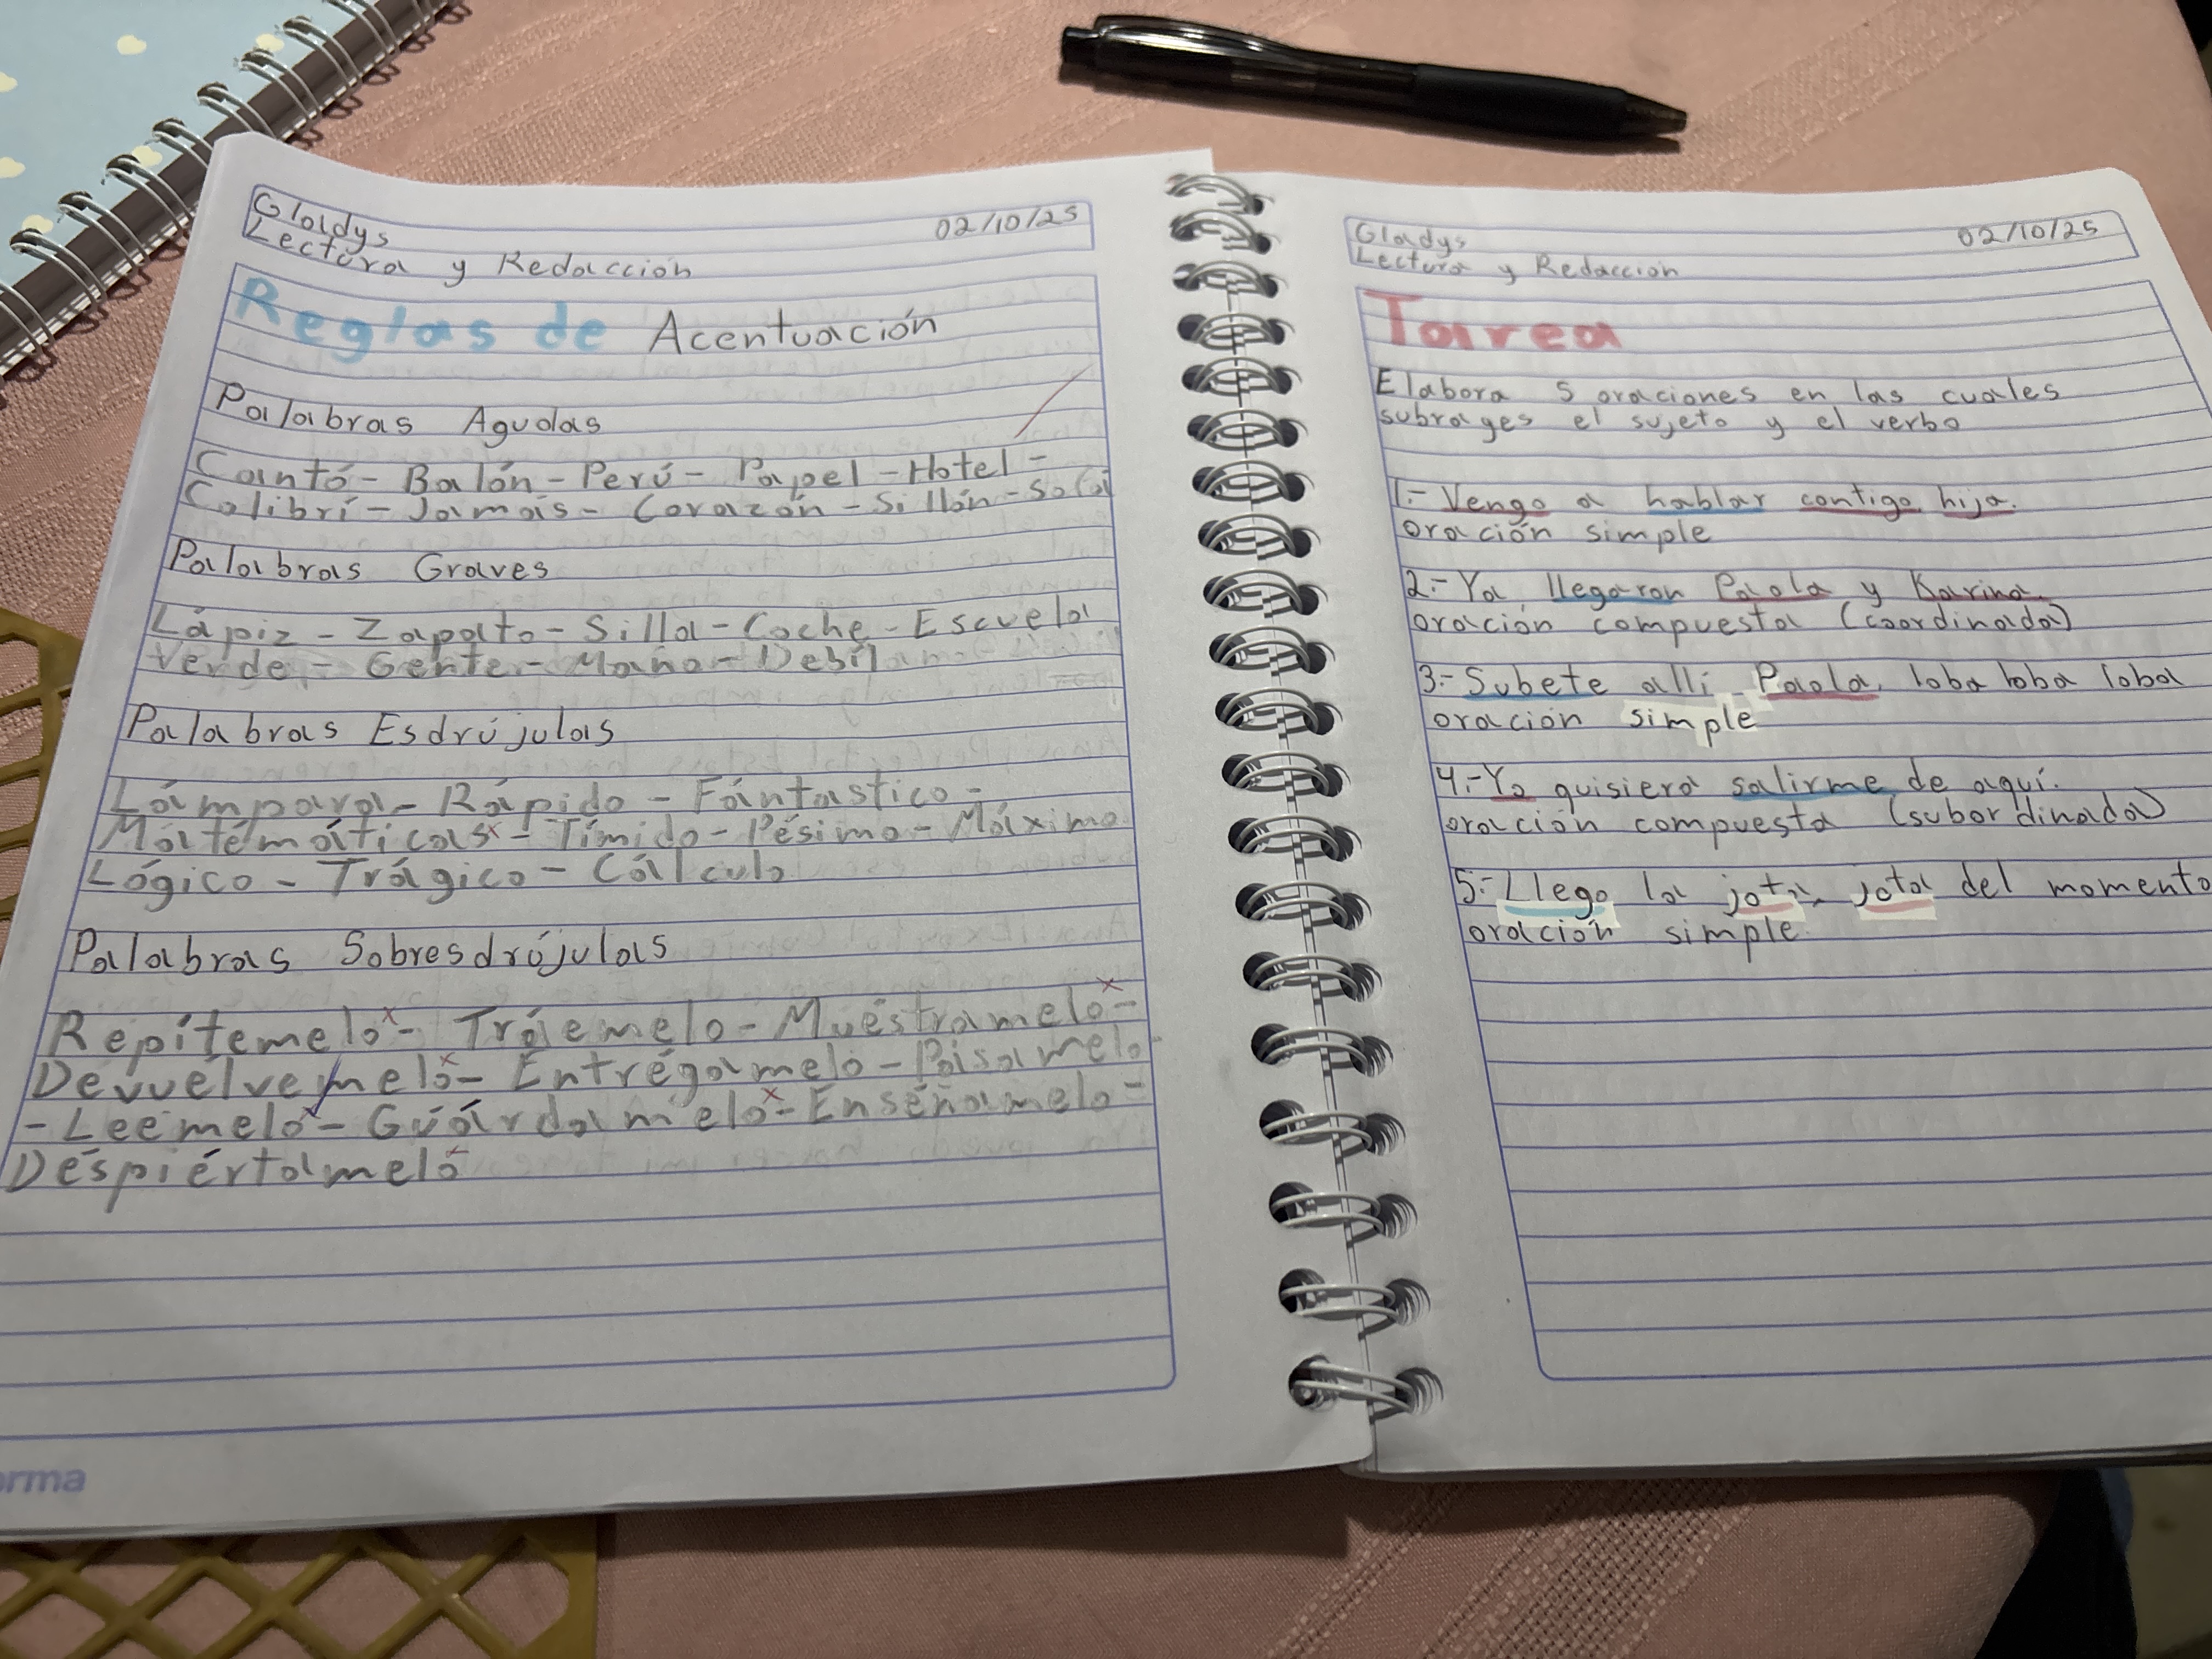 Gladys
Lectura y Redacción
02/10/25
Reglas de Acentuación
Palabras Agudas
Cantó - Balón - Perú - Papel - Hotel -
Colibrí - Jamás - Corazón - Sillón - Sofá
Palabras Graves
Lápiz - Zapato - Silla - Coche - Escuela
Verde - Gente - Mano - Debíl
Palabras Esdrújulas
Lámpara - Rápido - Fántastico -
Mátemáticas - Tímido - Pésimo - Máximo
Lógico - Trágico - Cálculo
Palabras Sobresdrújulas
Repítemeló - Tráemelo - Muéstrameló -
Devuélvemeló - Entrégamelo - Paisamelo -
- Leemeló - Guárdameló - Enséñamelo -
Déspiértameló
orma
Gladys
Lectura y Redacción
02/10/25
Tarea
Elabora 5 oraciones en las cuales
subrayes el sujeto y el verbo
1.- Vengo a hablar contigo, hija.
oración simple
2.- Ya, llegaron Paola y Karina.
oración compuesta (coordinada)
3.- Subete allí Paola, loba loba loba
oración simple
4.- Yo quisiera salirme de aquí.
oración compuesta (subordinada)
5.- Llego la jota, jota del momento
oración simple